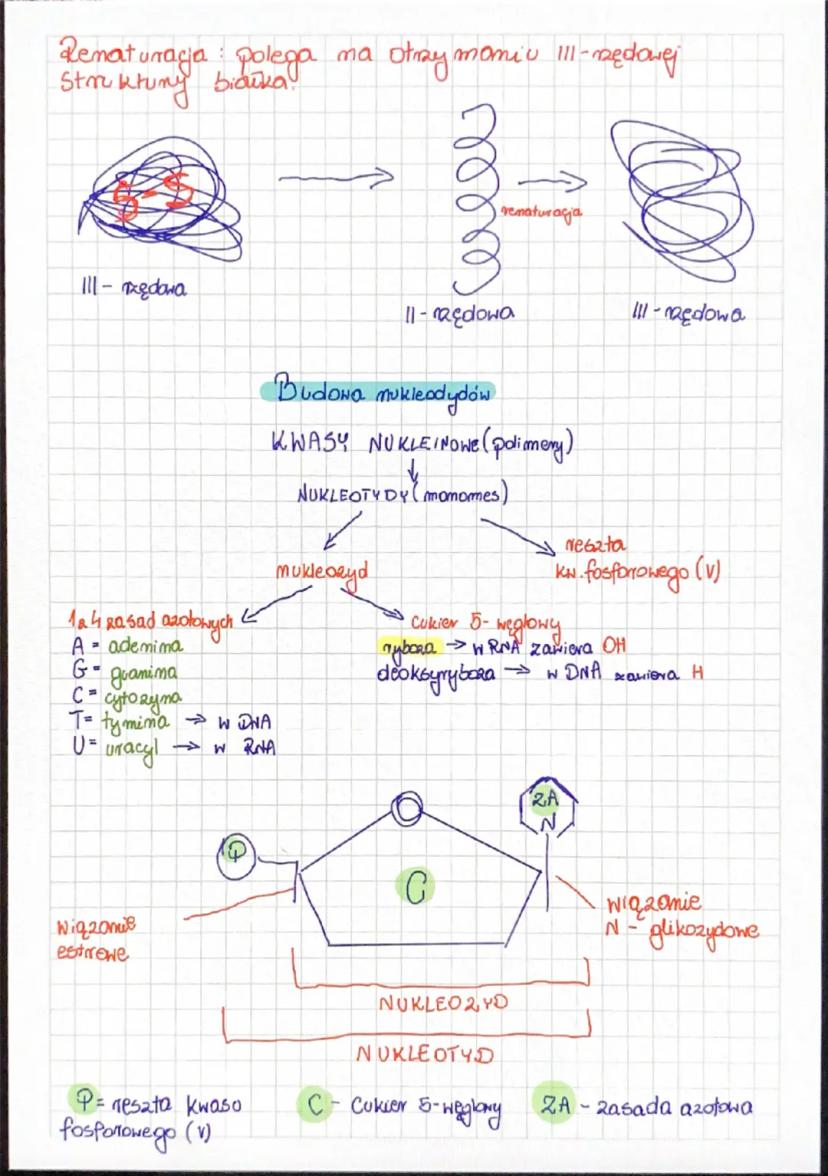 Renaturacja: polega na otrzymaniu III-rzędowej
struktury białka.
S-S
renaturacja
III-rzędowa
II-rzędowa
III-rzędowa
Budowa nukleodydów
KWASY NUKLEINOWE (polimery)
NUKLEOTYDY (monomes)
nukleozyd
reszta
kw. fosforowego (V)
1 z 4 zasad azotowych
A = adenina
G = guanina
C = cytozyna
T = tymina → w DNA
U = uracyl → w RNA
cukier 5-węglowy
ryboza → w RNA zawiera OH
deoksyryboza → w DNA zawiera H
O
ZA
N
P
C
wiązanie
estrowe
wiązanie
N - glikozydowe
NUKLEOZYD
NUKLEOTYD
P = reszta kwaso
fosforowego (V)
C - Cukier 5-węglowy
ZA - zasada azotowa